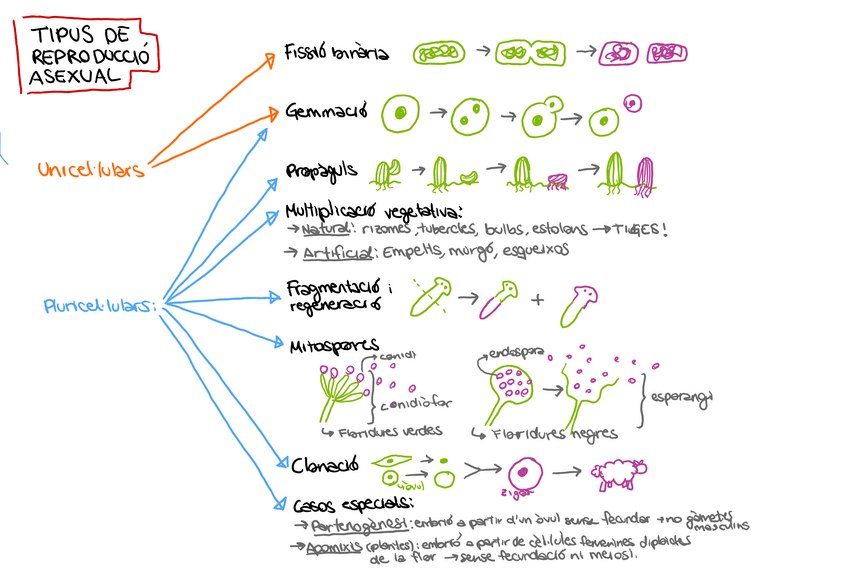 TIPUS DE
REPRODUCCIÓ
ASEXUAL
Unicel·lulars
Pluricel·lulars:
Fissió binària
Gemmació
Propàguls
Multiplicació vegetativa:
→ Natural: rizomes, tubercles, bulbs, estolons → TIJGES!
→ Artificial: Empelts, murgó, esqueixos
Fragmentació i
regeneració
+
Mitospores
conidi
conidiòfor
↳ Floridures verdes
endospora
esporangi
↳ Floridures negres
Clonació
òvul
zigot
Casos especials:
→ Partenogènesi: embrió a partir d'un òvul sense fecundar → no gàmetes
masculins
→ Apomixis (plantes): embrió a partir de cèl·lules femenines diploides
de la flor → sense fecundació ni meiosi.